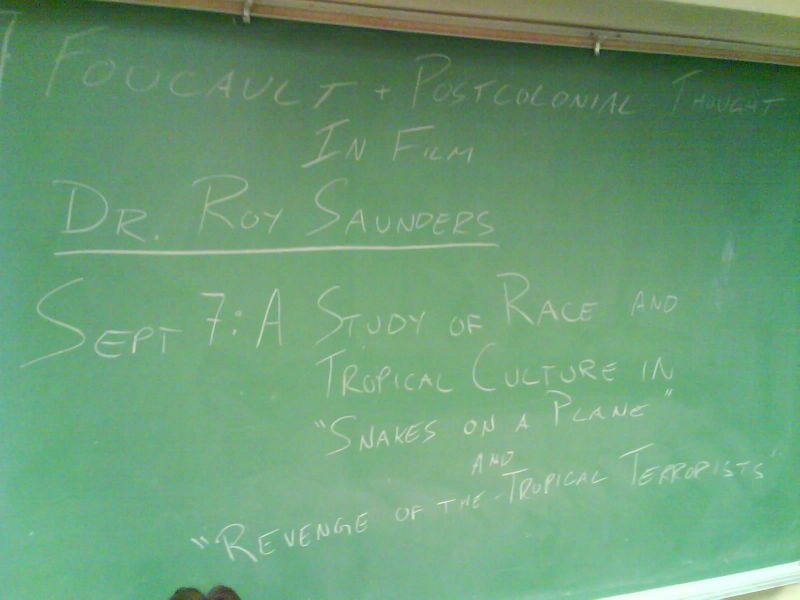 FOUCAULT + POSTCOLONIAL THOUGHT
IN FILM
DR. ROY SAUNDERS
SEPT 7: A STUDY OF RACE AND
TROPICAL CULTURE IN
"SNAKES ON A PLANE"
AND
"REVENGE OF THE TROPICAL TERRORISTS"